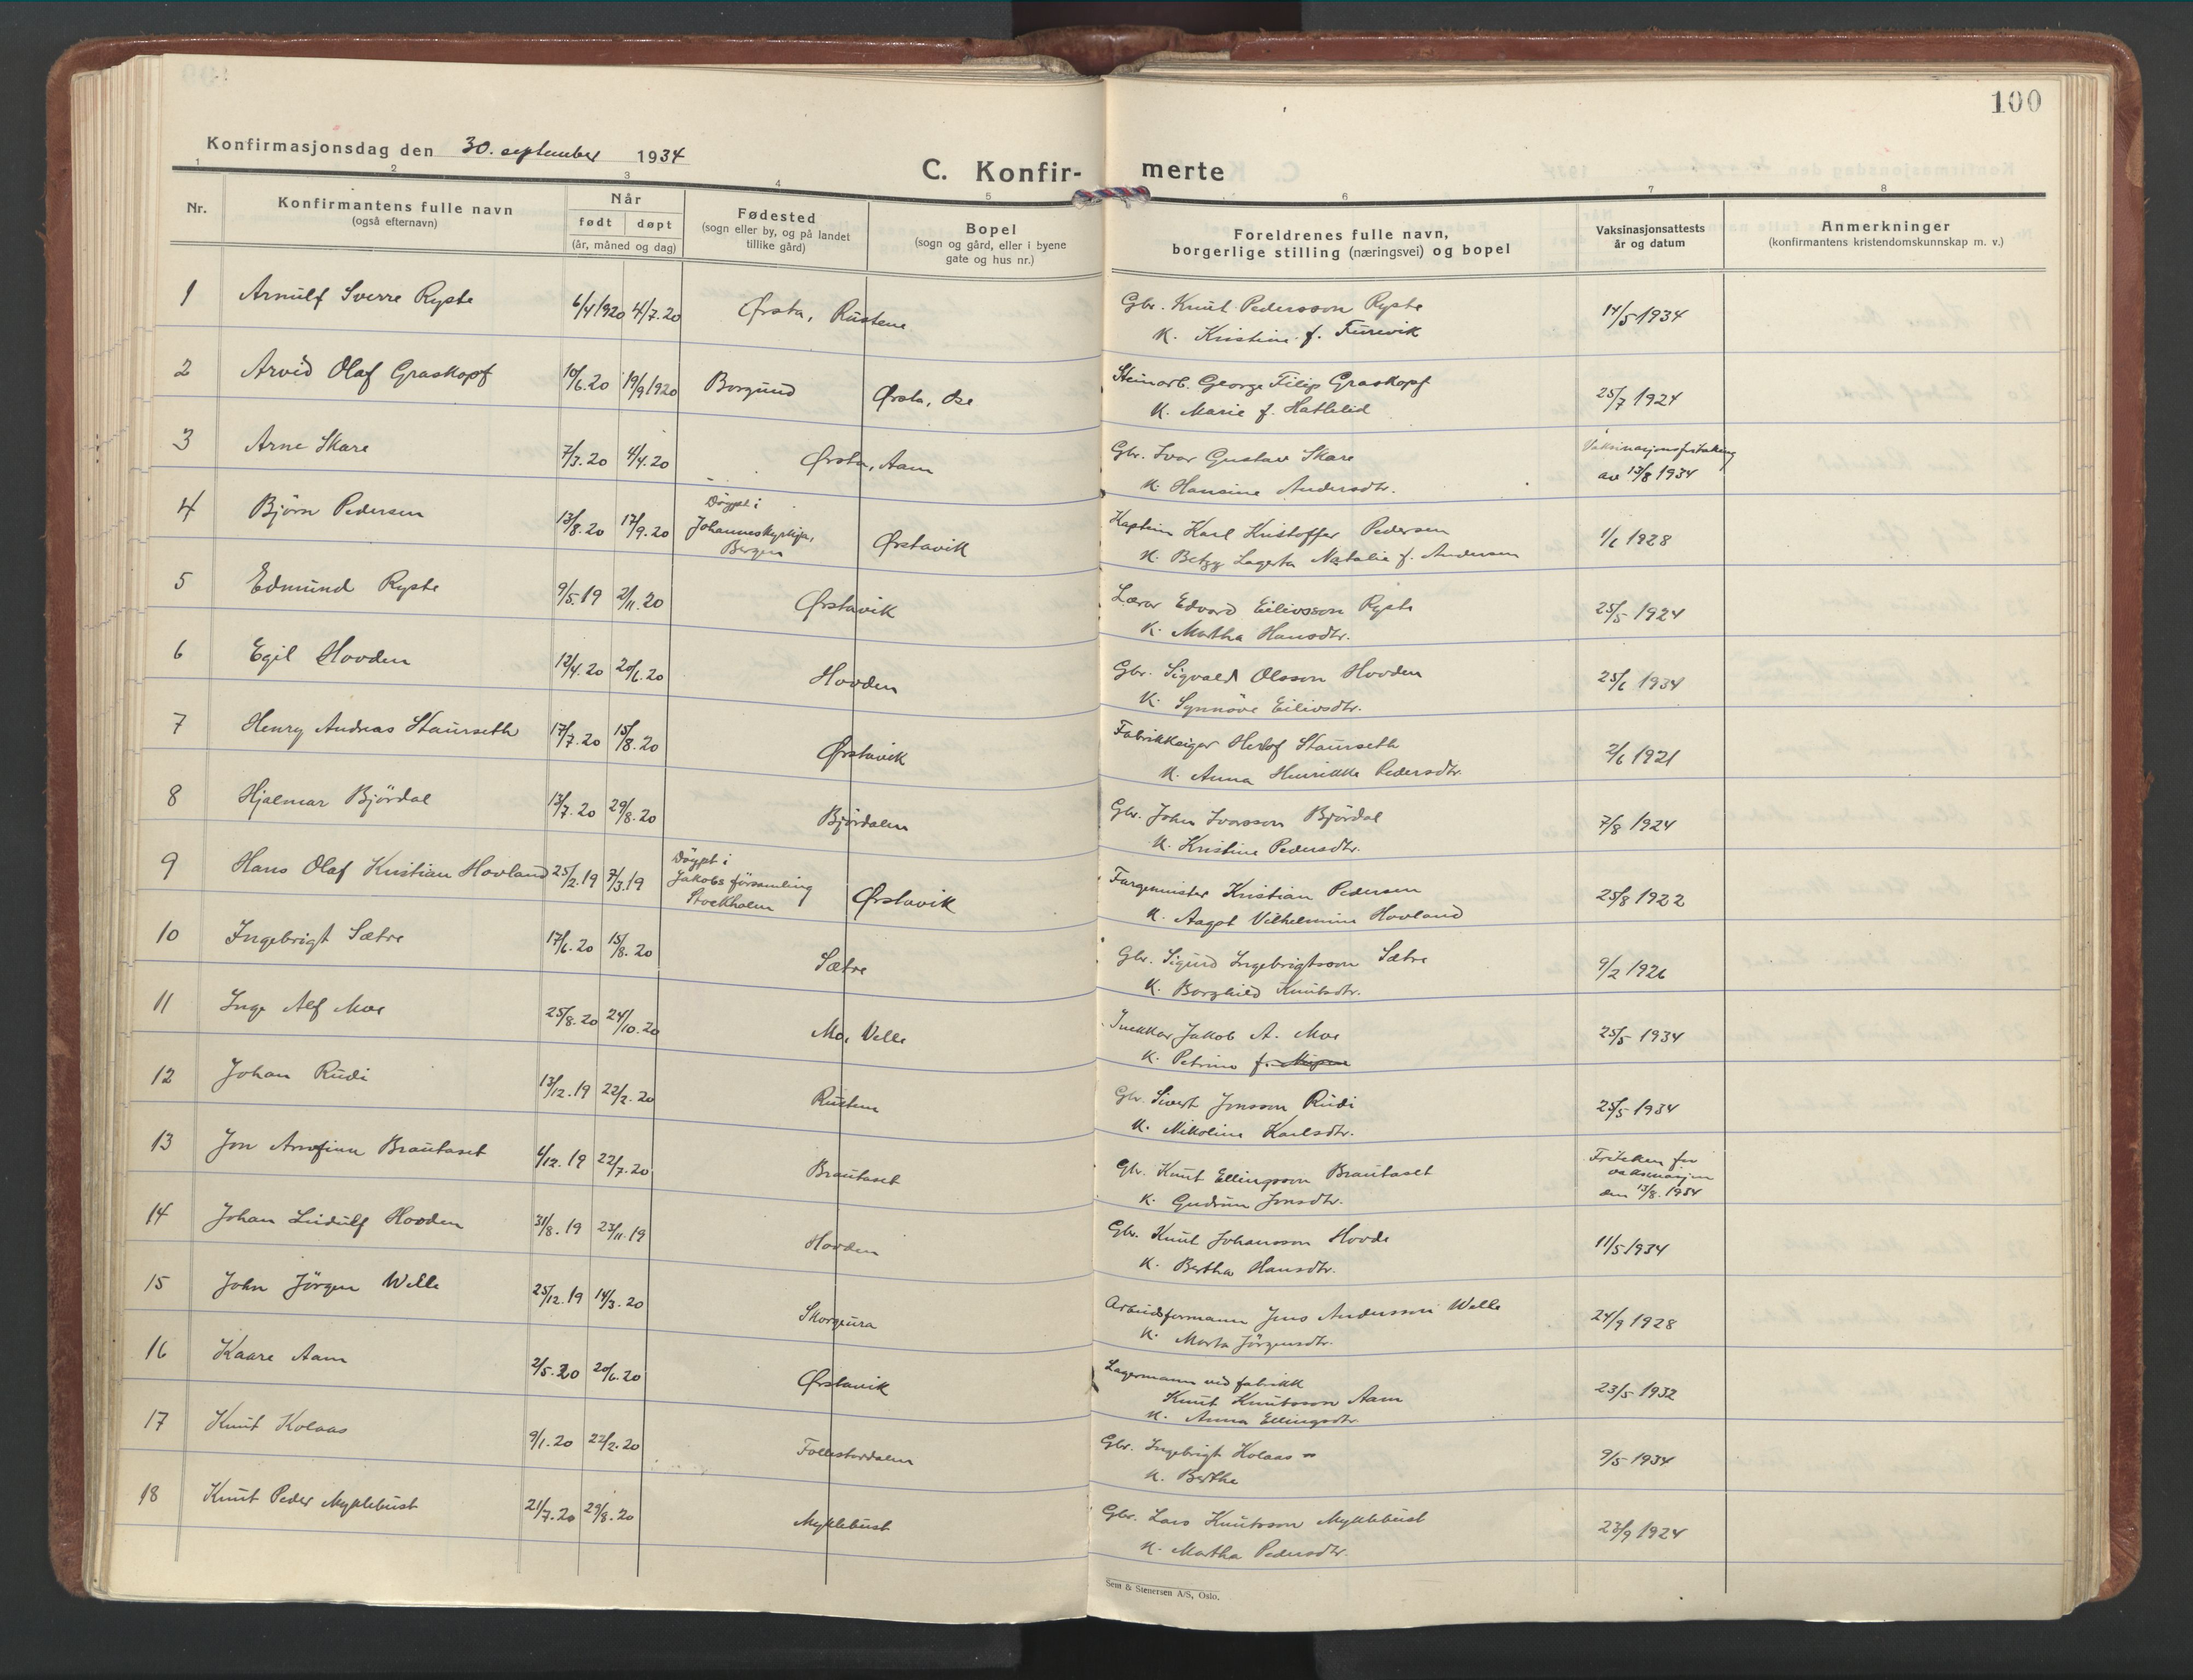 100
Konfirmasjonsdag den 30. september 1934
C. Konfir- merte
1 2 3 4 5 6 7 8
Nr.
Konfirmantens fulle navn
(også efternavn)
Når
født døpt
(år, måned og dag)
Fødested
(sogn eller by, og på landet
tillike gård)
Bopel
(sogn og gård, eller i byene
gate og hus nr.)
Foreldrenes fulle navn,
borgerlige stilling (næringsvei) og bopel
Vaksinasjonsattests
år og datum
Anmerkninger
(konfirmantens kristendomskunnskap m. v.)
1 Arnulf Sverre Ryste 6/4 1920 4/7.20 Ørsta, Rustene
Gbr. Knut Pedersson Ryste
K. Kristine f. Furevik
14/5 1934
2 Arvid Olaf Graskopf 10/6.20 19/9 1920 Borgund Ørsta, Ose
Steinarb. George Filip Graskopf
K. Marie f. Hatlelid
25/7 1924
3 Arne Skare 7/3.20 4/4.20 Ørsta, Aam
Gbr. Ivar Gustav Skare
K. Hansine Andersdtr.
Vaksinasjonsfritaking
av 13/8 1934
4 Björn Pedersen 13/8.20 17/9.20
Döypt i
Johanneskyrkja,
Bergen
Ørstavik
Kaptein Karl Kristoffer Pedersen
K. Betzy Lagerta Natalie f. Andersen
1/6 1928
5 Edmund Ryste 9/5.19 2/11.20 Ørstavik
Lærar Edvard Eilivsson Ryste
K. Martha Hansdtr.
25/5 1924
6 Egil Hovden 12/4.20 20/6.20 Hovden
Gbr. Sigvald Olsson Hovden
K. Synnöve Eilivsdtr.
25/6 1934
7 Henry Andreas Staurseth 17/7.20 15/8.20 Ørstavik
Fabrikkeigar Herlof Staurseth
K. Anna Henrikke Pedersdtr.
2/6 1921
8 Hjalmar Björdal 13/7.20 29/8.20 Björdalen
Gbr. John Ivarsson Björdal
K. Kristine Pedersdtr.
7/8 1924
9 Hans Olaf Kristian Hovland 25/2.19 7/3.19
Döypt i
Jakobs församling
Stockholm
Ørstavik
Fargemeister Kristian Pedersen
K. Aagot Vilhelmine Hovland
25/8 1922
10 Ingebrigt Sætre 17/6.20 15/8.20 Sætre
Gbr. Sigurd Ingebrigtsson Sætre
K. Borghild Knutsdtr.
9/2 1926
11 Inge Alf Moe 25/8.20 24/10.20 Mo, Velle
Snekkar Jakob A. Moe
K. Petrine f.
25/5 1934
12 Johan Rudi 13/12.19 22/2.20 Rusten
Gbr. Sivert Jonsson Rudi
K. Nikoline Karlsdtr.
25/5 1934
13 Jon Arnfinn Brautaset 4/12.19 22/7.20 Brautaset
Gbr. Knut Ellingsson Brautaset
K. Gudrun Jonsdtr.
Friteken for
vaksinasjon
den 13/8.1934
14 Johan Lidulf Hovden 31/8.19 23/11.19 Hovden
Gbr. Knut Johansson Hovde
K. Bertha Hansdtr.
11/5 1934
15 John Jörgen Welle 25/12.19 14/3.20 Skorgeura
Arbeidsformann Jens Andersson Welle
K. Marta Jörgensdtr.
24/9 1928
16 Kaare Aam 2/5.20 20/6.20 Ørstavik
Lagermann ved fabrikk
Knut Knutsson Aam
K. Anna Ellingsdtr.
23/5 1932
17 Knut Kolaas 9/1.20 22/2.20 Follestaddalen
Gbr. Ingebrigt Kolaas
K. Berthe
9/5 1934
18 Knut Peder Myklebust 21/7.20 29/8.20 Myklebust
Gbr. Lars Knutsson Myklebust
K. Martha Pedersdtr.
23/9 1924
Sem & Stenersen A/S, Oslo.